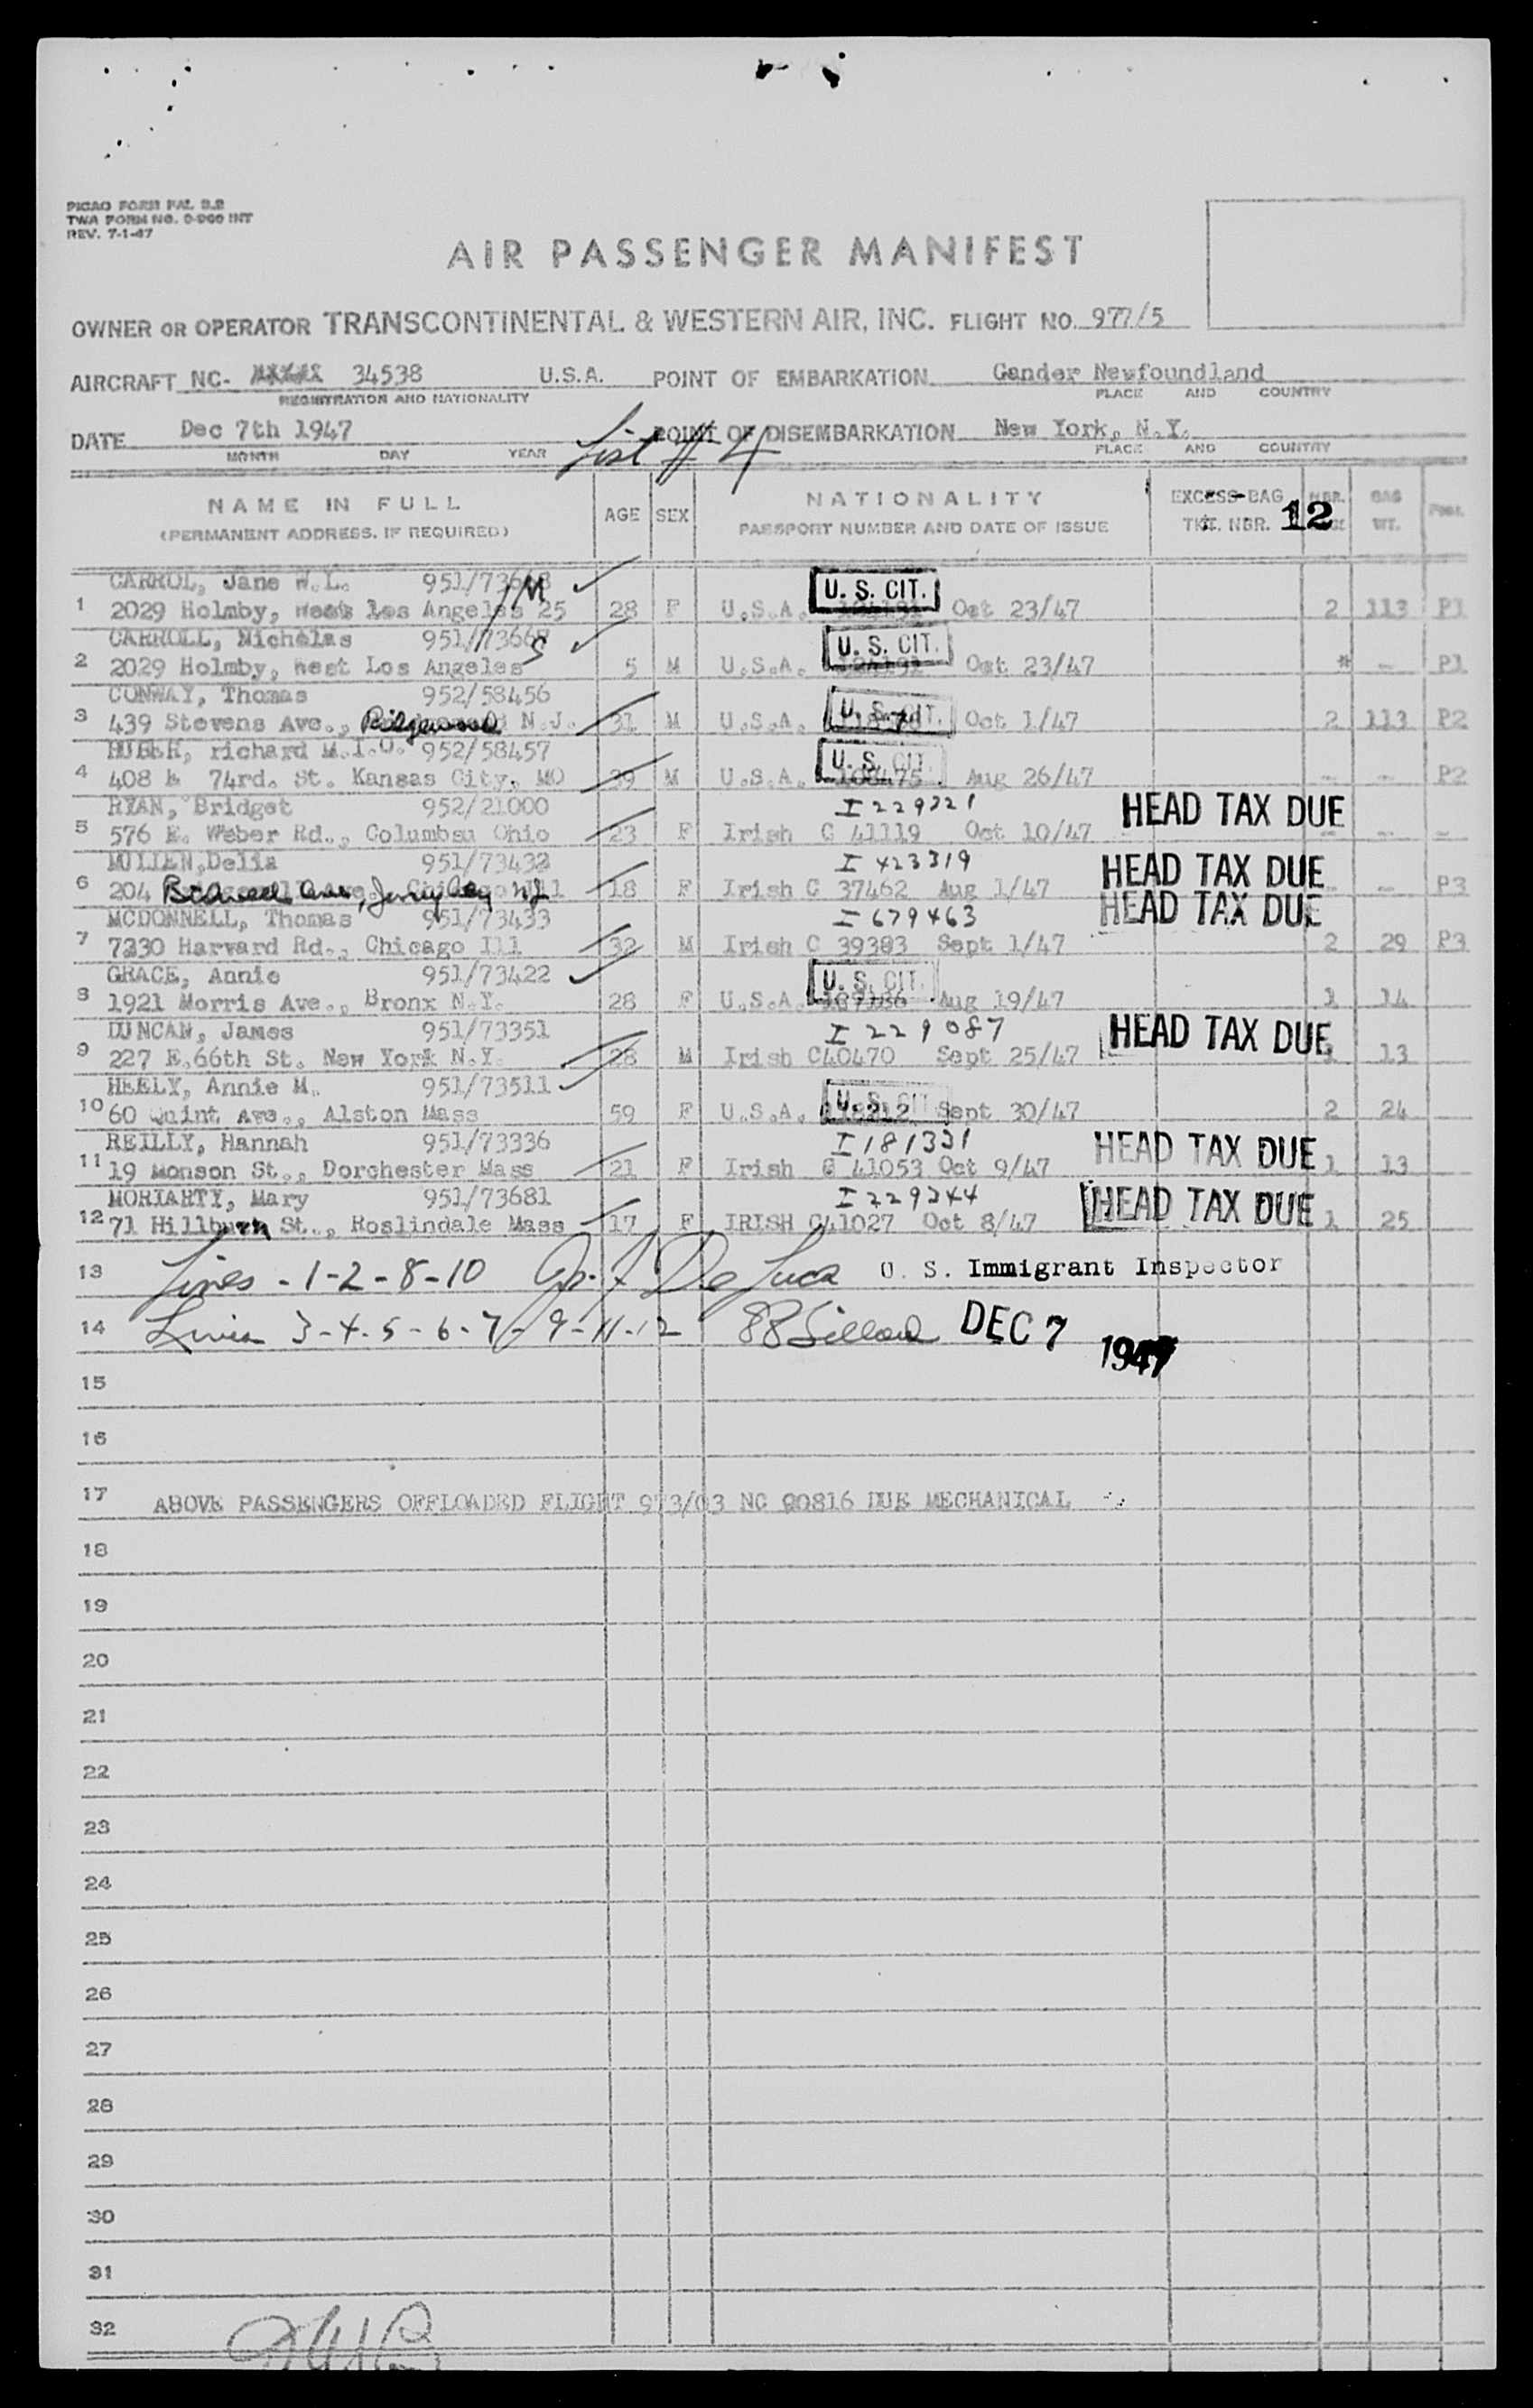 PICAO FORM FAL 2.2
TWA FORM NO. 0-900 INT
REV. 7-1-47
AIR PASSENGER MANIFEST
OWNER OR OPERATOR TRANSCONTINENTAL & WESTERN AIR, INC. FLIGHT NO. 977/5
AIRCRAFT NC- 34538 U.S.A. POINT OF EMBARKATION Gander Newfoundland
REGISTRATION AND NATIONALITY PLACE AND COUNTRY
DATE Dec 7th 1947 POINT OF DISEMBARKATION New York, N.Y.
MONTH DAY YEAR List # 4 PLACE AND COUNTRY
NAME IN FULL AGE SEX NATIONALITY EXCESS-BAG NBR. BAG
(PERMANENT ADDRESS, IF REQUIRED) PASSPORT NUMBER AND DATE OF ISSUE TKT. NBR. 12 WT.
CARROL, Jane W.L. M U. S. CIT.
1 2029 Holmby, West Los Angeles 25 28 F U.S.A. Oct 23/47 2 113 P1
CARROLL, Nicholas S U. S. CIT.
2 2029 Holmby, West Los Angeles 5 M U.S.A. Oct 23/47 * - P1
CONWAY, Thomas 952/58456 U. S. CIT.
3 439 Stevens Ave., Ridgewood N.J. 31 M U.S.A. Oct 1/47 2 113 P2
richard M.I.O. 952/58457 U. S. CIT.
4 408 E 74rd. St. Kansas City, MO 39 M U.S.A. Aug 26/47 - - P2
RYAN, Bridget 952/21000 I 229321 HEAD TAX DUE
5 576 E. Weber Rd., Columbsu Ohio 23 F Irish C 41119 Oct 10/47 - - -
Delia 951/73432 I 423319 HEAD TAX DUE
6 204 Bidwell Ave, Jersey City NJ 18 F Irish C 37462 Aug 1/47 - - P3
MCDONNELL, Thomas 951/73433 I 679463 HEAD TAX DUE
7 7330 Harvard Rd., Chicago Ill 32 M Irish C 39383 Sept 1/47 2 29 P3
GRACE, Annie 951/73422 U. S. CIT.
8 1921 Morris Ave., Bronx N.Y. 28 F U.S.A. Aug 19/47 1 14
DUNCAN, James 951/73351 I 229087 HEAD TAX DUE
9 227 E.66th St. New York N.Y. 28 M Irish C40470 Sept 25/47 1 13
HEELY, Annie M. 951/73511 U. S. CIT.
10 60 Quint Ave., Alston Mass 59 F U.S.A. Sept 30/47 2 24
REILLY, Hannah 951/73336 I 181331 HEAD TAX DUE
11 19 Monson St., Dorchester Mass 21 F Irish C 41053 Oct 9/47 1 13
MORIARTY, Mary 951/73681 I 229344 HEAD TAX DUE
12 71 Hillburn St., Roslindale Mass 17 F IRISH C41027 Oct 8/47 1 25
13 Lines - 1-2-8-10 De Luca U. S. Immigrant Inspector
14 Lines 3-4-5-6-7-9-11-12 DEC 7 1947
15
16
17 ABOVE PASSENGERS OFFLOADED FLIGHT 973/03 NC 90816 DUE MECHANICAL
18
19
20
21
22
23
24
25
26
27
28
29
30
31
32